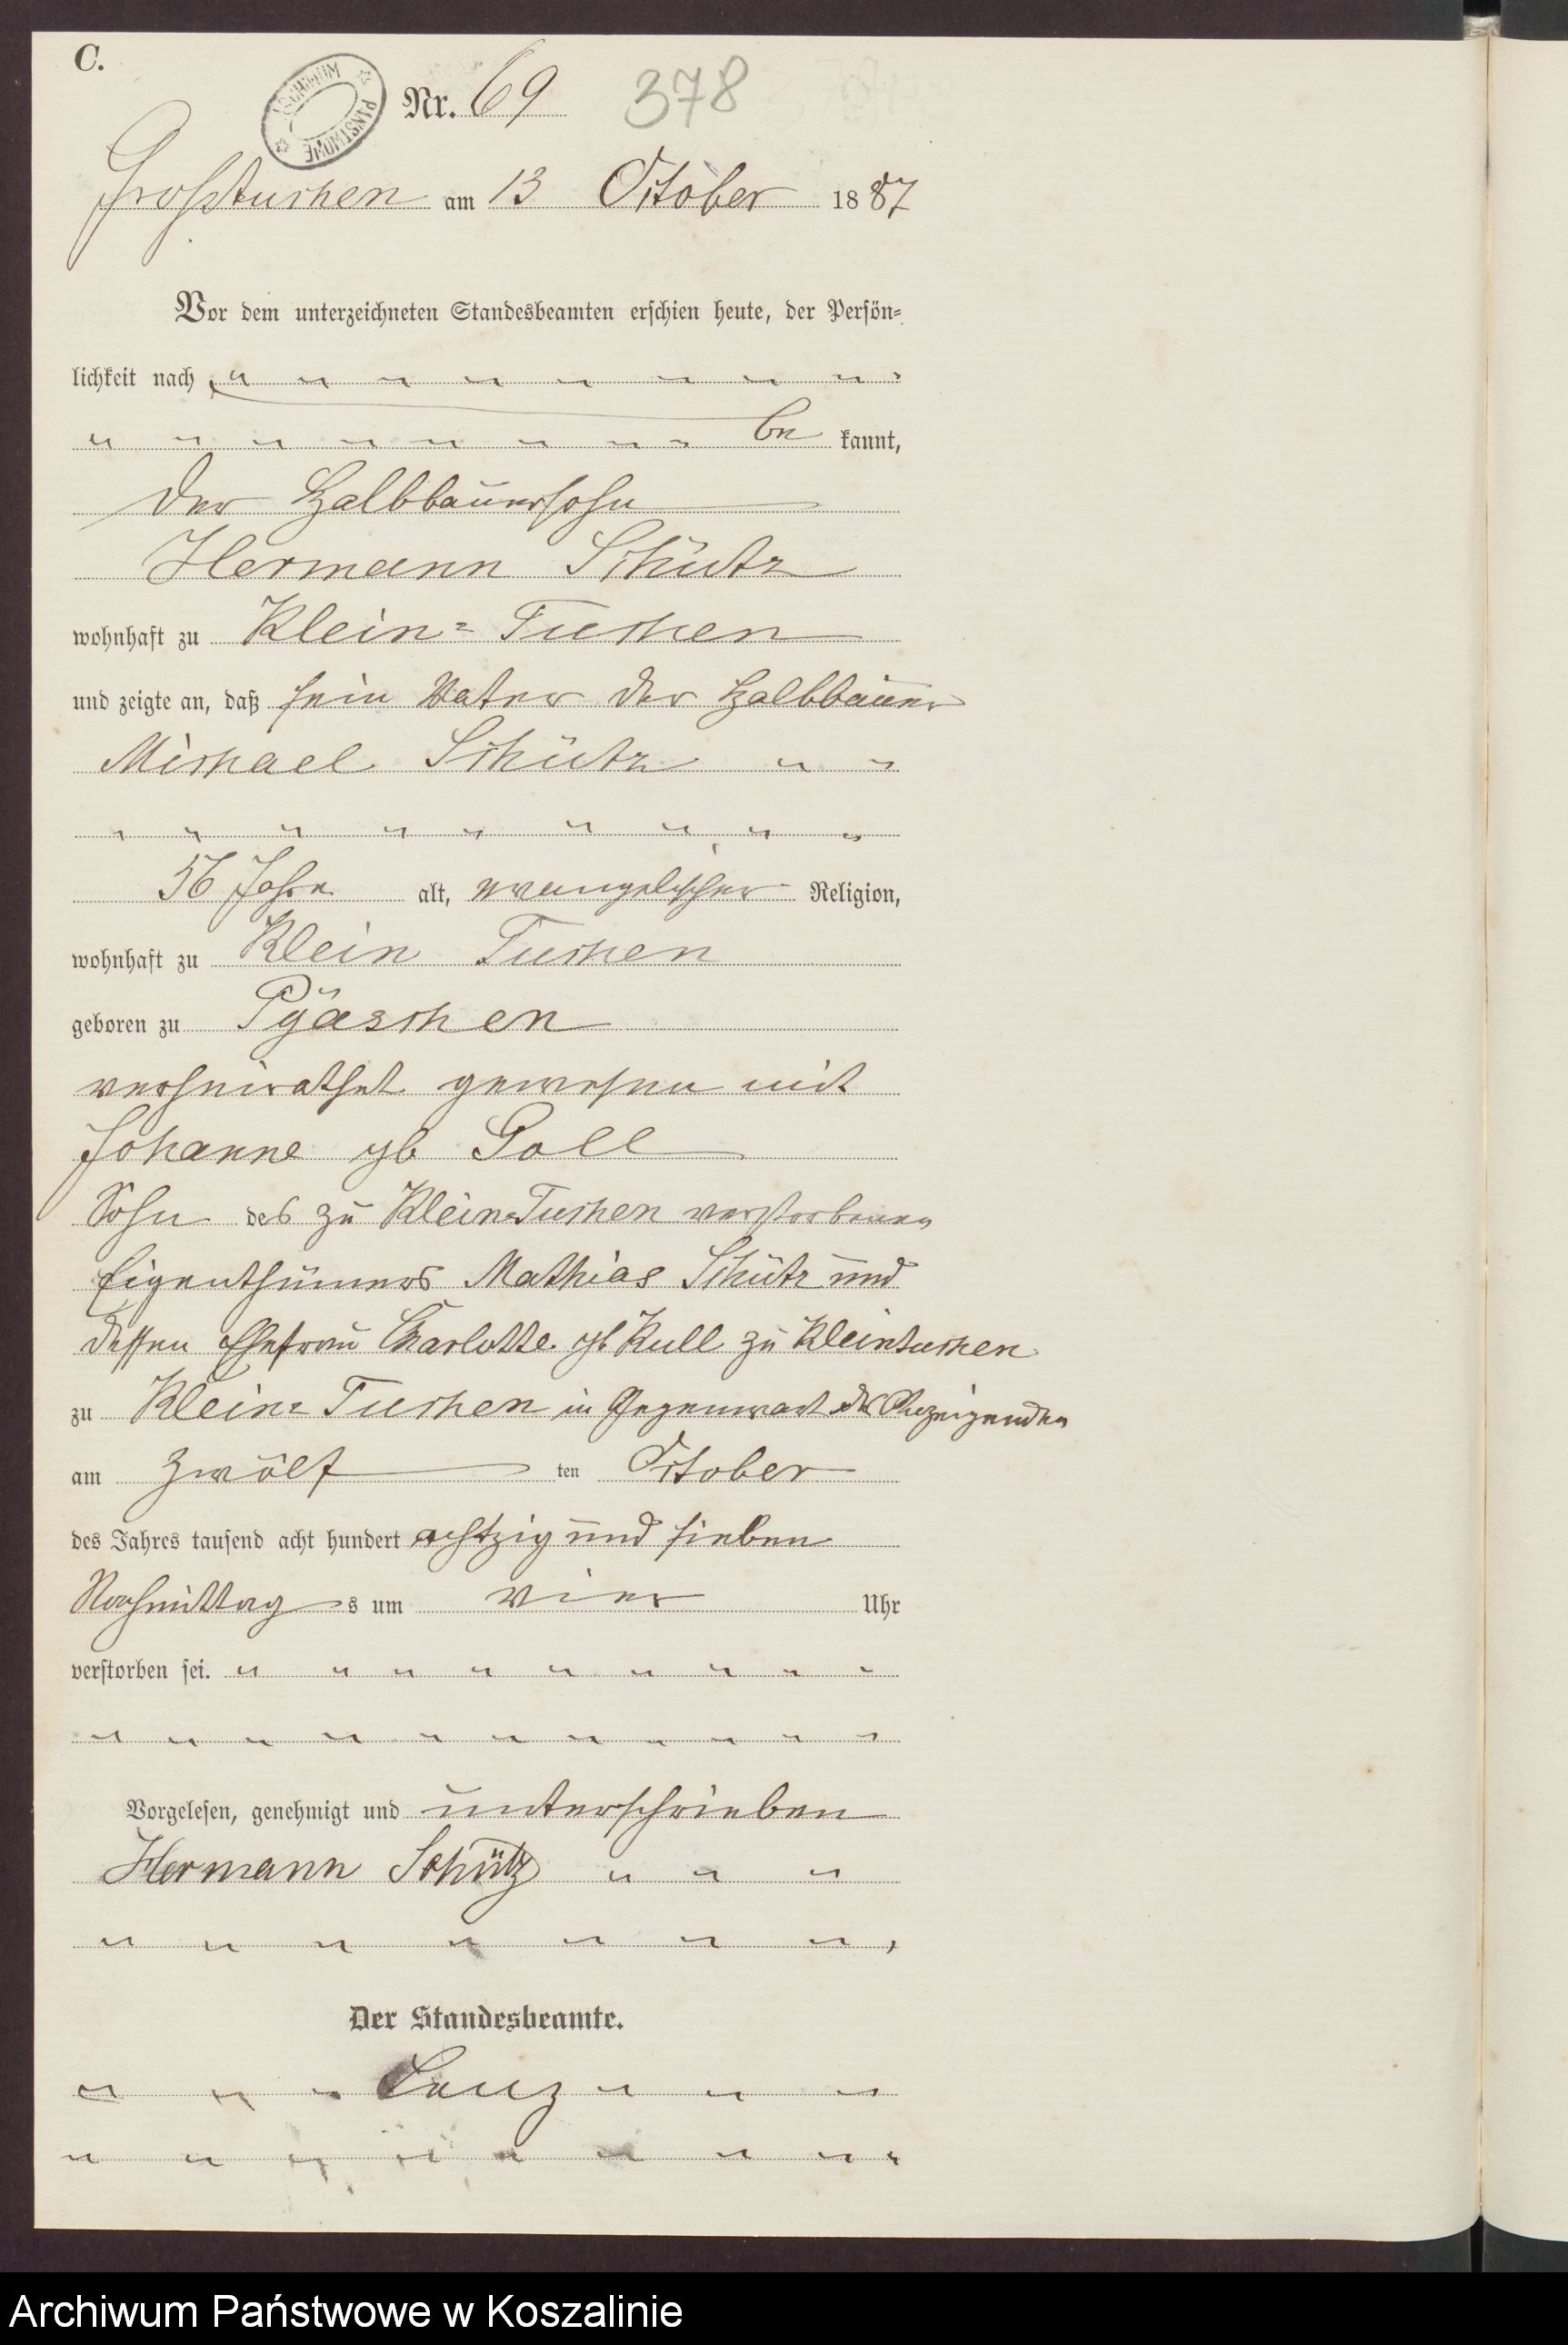 C.
ARCHIWUM PAŃSTWOWE
Nr. 69 378
Großtuchen am 13 October 1887
Vor dem unterzeichneten Standesbeamten erschien heute, der Persön=
lichkeit nach
be kannt,
der Halbbauersohn
Hermann Schütz
wohnhaft zu Klein=Tuchen
und zeigte an, daß sein Vater der Halbbauer
Michael Schütz
56 Jahre alt, evangelischer Religion,
wohnhaft zu Klein Tuchen
geboren zu Pyaschen
verheirathet gewesen mit
Johanne gb Goll
Sohn des zu Klein=Tuchen verstorbenen
Eigenthümers Mathias Schütz und
dessen Ehefrau Charlotte gb Kull zu Kleintuchen
zu Klein=Tuchen in Gegenwart des Anzeigenden
am zwölf ten October
des Jahres tausend acht hundert achtzig und sieben
Nachmittag s um vier Uhr
verstorben sei.
Vorgelesen, genehmigt und unterschrieben
Hermann Schütz
Der Standesbeamte.
Archiwum Państwowe w Koszalinie